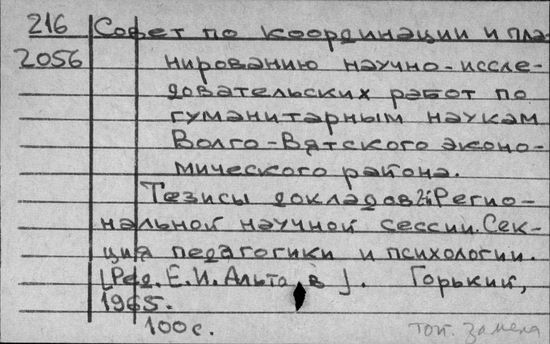 216 Совет по координации и пла-
2056 нированию научно-иссле-
довательских работ по
гуманитарным наукам
Волго-Вятского эконо-
мического района.
Тезисы докладов 2й Регио-
нальной научной сессии. Сек-
ция педагогики и психологии.
[Ред. Е.И. Альто в]. Горький,
1965.
100с.